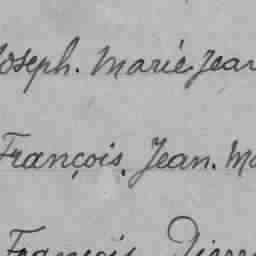 Joseph. Marié Jean
François, Jean. Ma
François Pierre